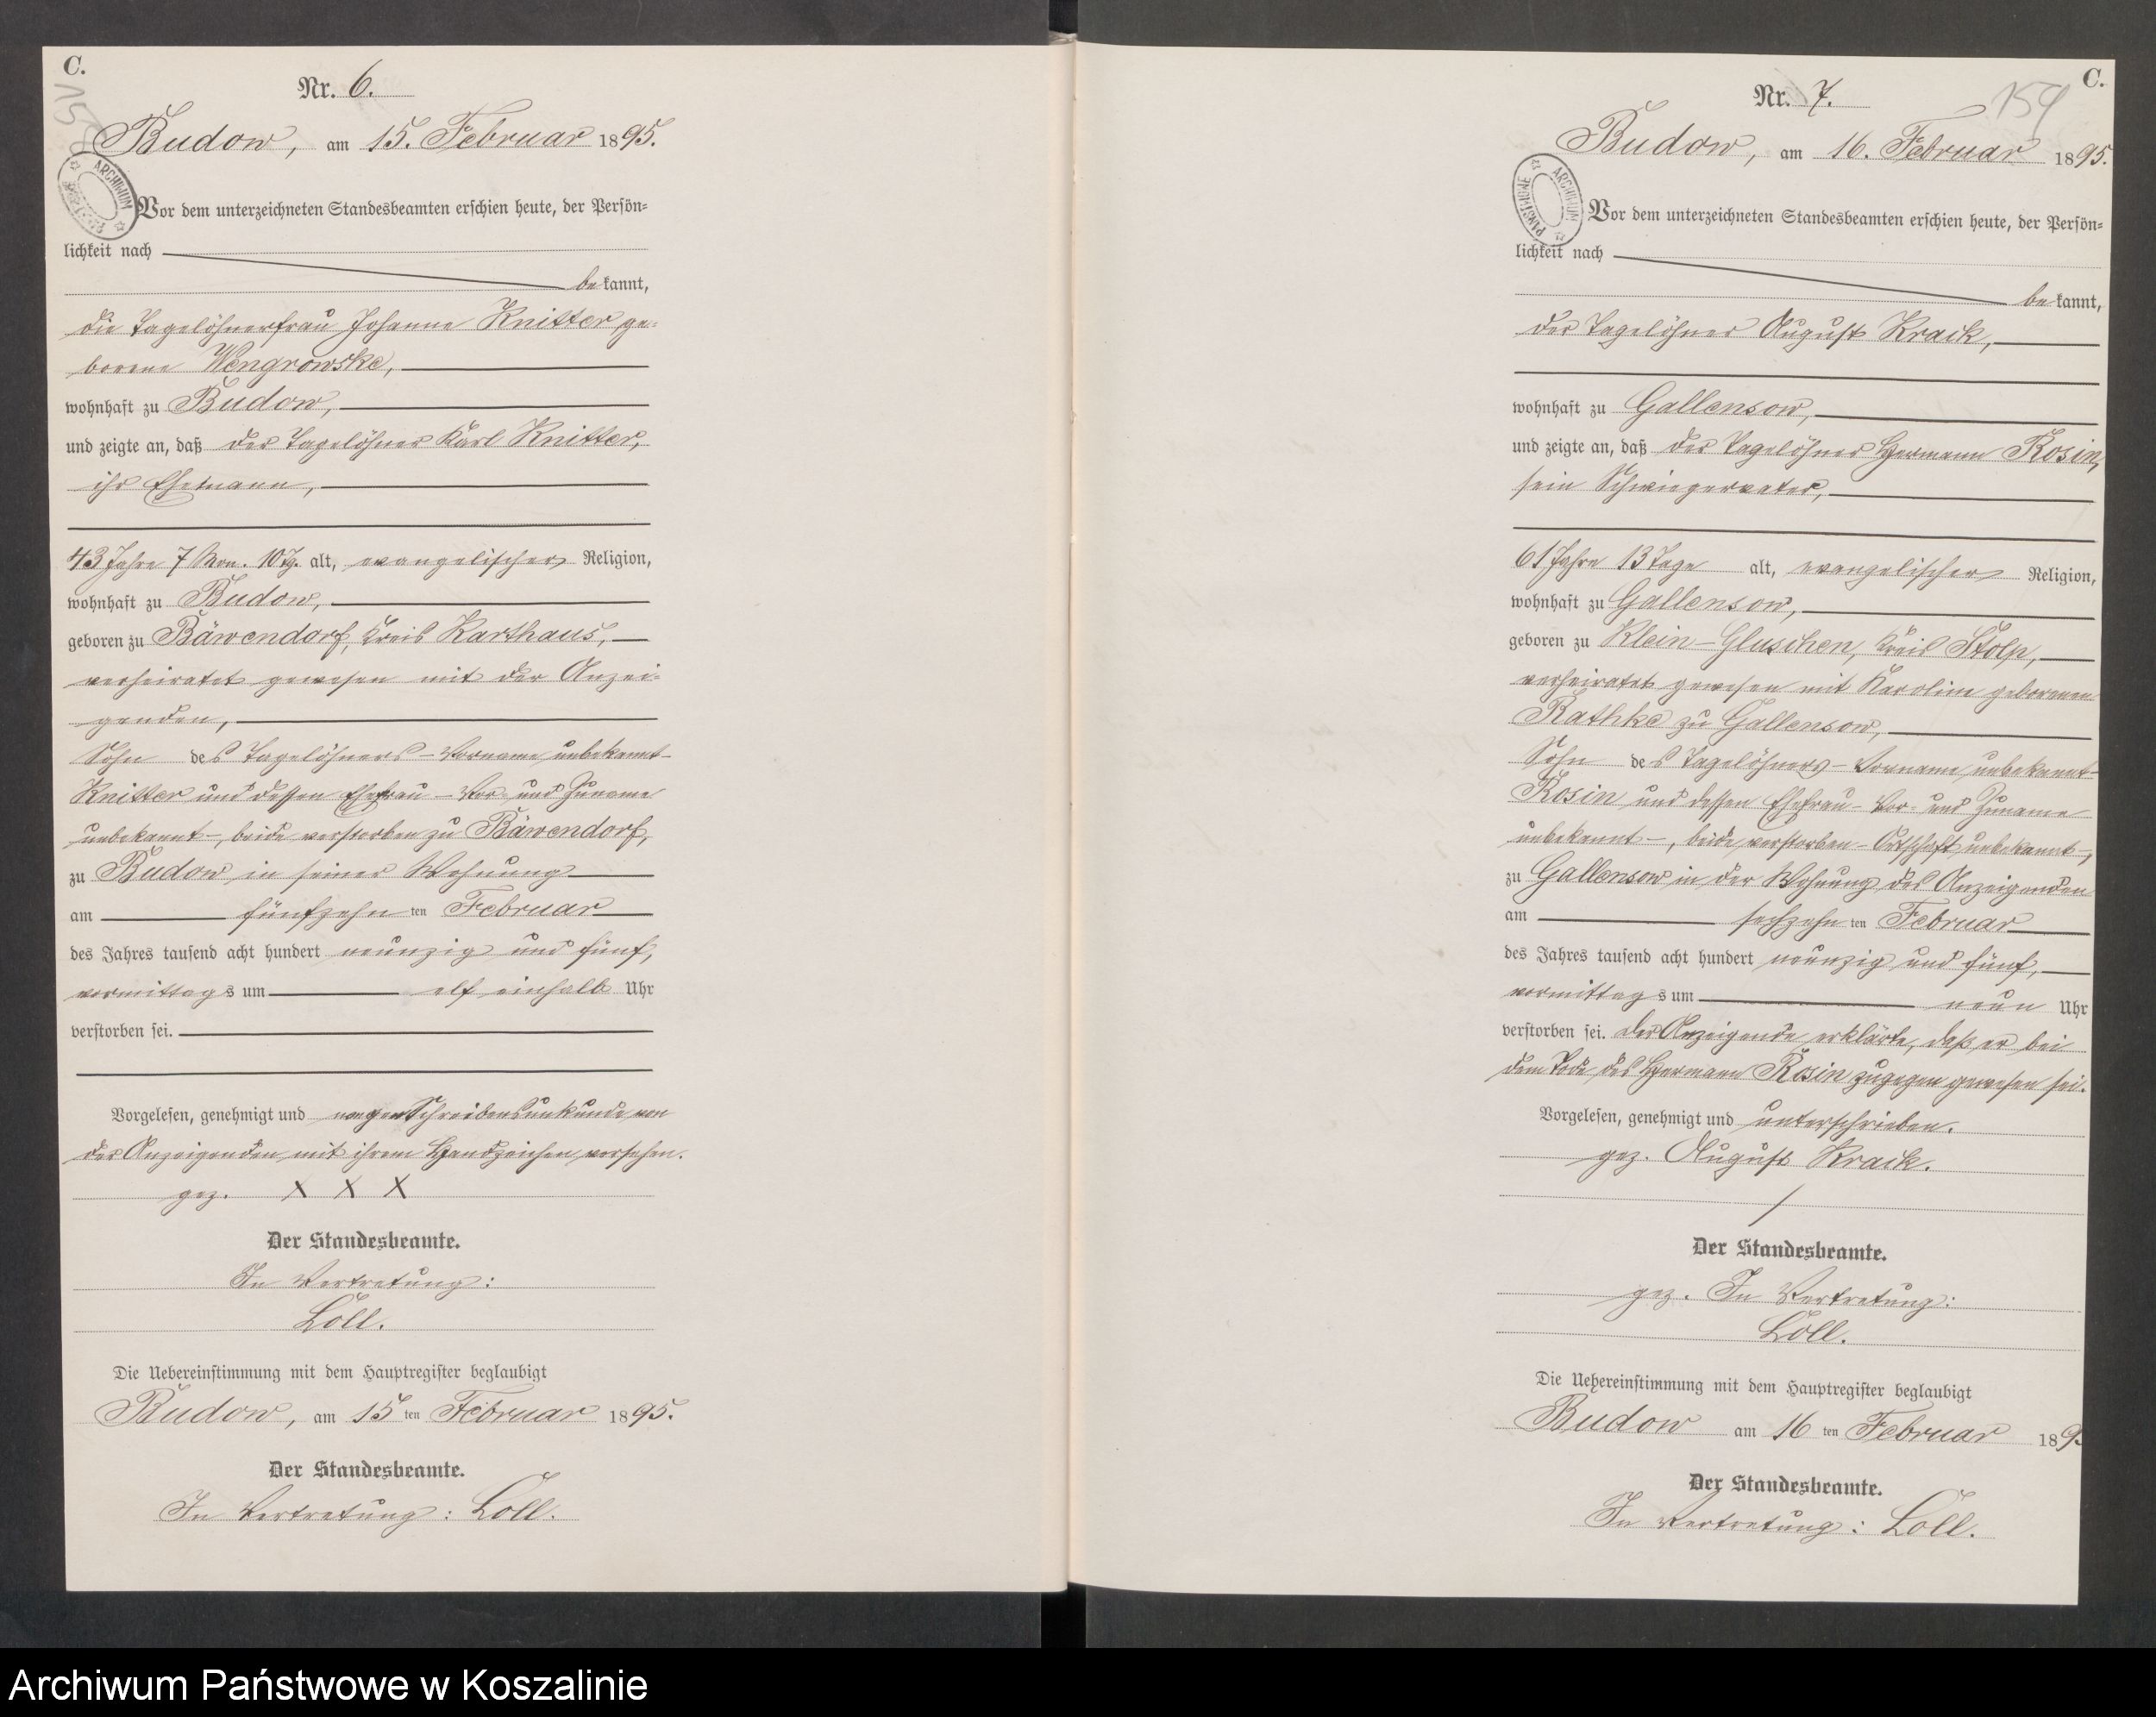 C.
Nr. 6.
Budow, am 15. Februar 1895.
ARCHIWUM
Vor dem unterzeichneten Standesbeamten erschien heute, der Persön-
lichkeit nach
bekannt,
die Tagelöhnerfrau Johanne Knitter ge-
borene Wengrowske,
wohnhaft zu Budow,
und zeigte an, daß der Tagelöhner Karl Knitter,
ihr Ehemann,
43 Jahre 7 Mon. 10 Tg. alt, evangelischer Religion,
wohnhaft zu Budow,
geboren zu Bäwendorf, Kreis Karthaus,
verheiratet gewesen mit der Anzei-
genden,
Sohn des Tagelöhners - Vorname unbekannt -
Knitter und dessen Ehefrau - Vor- und Zuname
unbekannt -, beide verstorben zu Bäwendorf,
zu Budow in seiner Wohnung
am fünfzehn ten Februar
des Jahres tausend acht hundert neunzig und fünf,
vormittags um elf einhalb Uhr
verstorben sei.
Vorgelesen, genehmigt und wegen Schreibensunkunde von
der Anzeigenden mit ihrem Handzeichen versehen.
gez. X X X
Der Standesbeamte.
In Vertretung:
Löll.
Die Uebereinstimmung mit dem Hauptregister beglaubigt
Budow, am 15 ten Februar 1895.
Der Standesbeamte.
In Vertretung: Löll.
C.
154
Nr. 7.
Budow, am 16. Februar 1895.
ARCHIWUM PAŃSTWOWE
Vor dem unterzeichneten Standesbeamten erschien heute, der Persön-
lichkeit nach
bekannt,
der Tagelöhner August Krack,
wohnhaft zu Gallensow,
und zeigte an, daß der Tagelöhner Hermann Rosin,
sein Schwiegervater,
61 Jahre 13 Tage alt, evangelischer Religion,
wohnhaft zu Gallensow,
geboren zu Klein-Gluschen, Kreis Stolp,
verheiratet gewesen mit Karoline geborenen
Rathke zu Gallensow,
Sohn des Tagelöhners - Vorname unbekannt -
Rosin und dessen Ehefrau - Vor- und Zuname
unbekannt -, beide verstorben - Ortschaft unbekannt -,
zu Gallensow in der Wohnung des Anzeigenden
am sechzehn ten Februar
des Jahres tausend acht hundert neunzig und fünf,
vormittags um neun Uhr
verstorben sei. Der Anzeigende erklärte, daß er bei
dem Tode des Hermann Rosin zugegen gewesen sei.
Vorgelesen, genehmigt und unterschrieben.
gez. August Krack.
Der Standesbeamte.
gez. In Vertretung:
Löll.
Die Uebereinstimmung mit dem Hauptregister beglaubigt
Budow am 16 ten Februar 189
Der Standesbeamte.
In Vertretung: Löll.
Archiwum Państwowe w Koszalinie